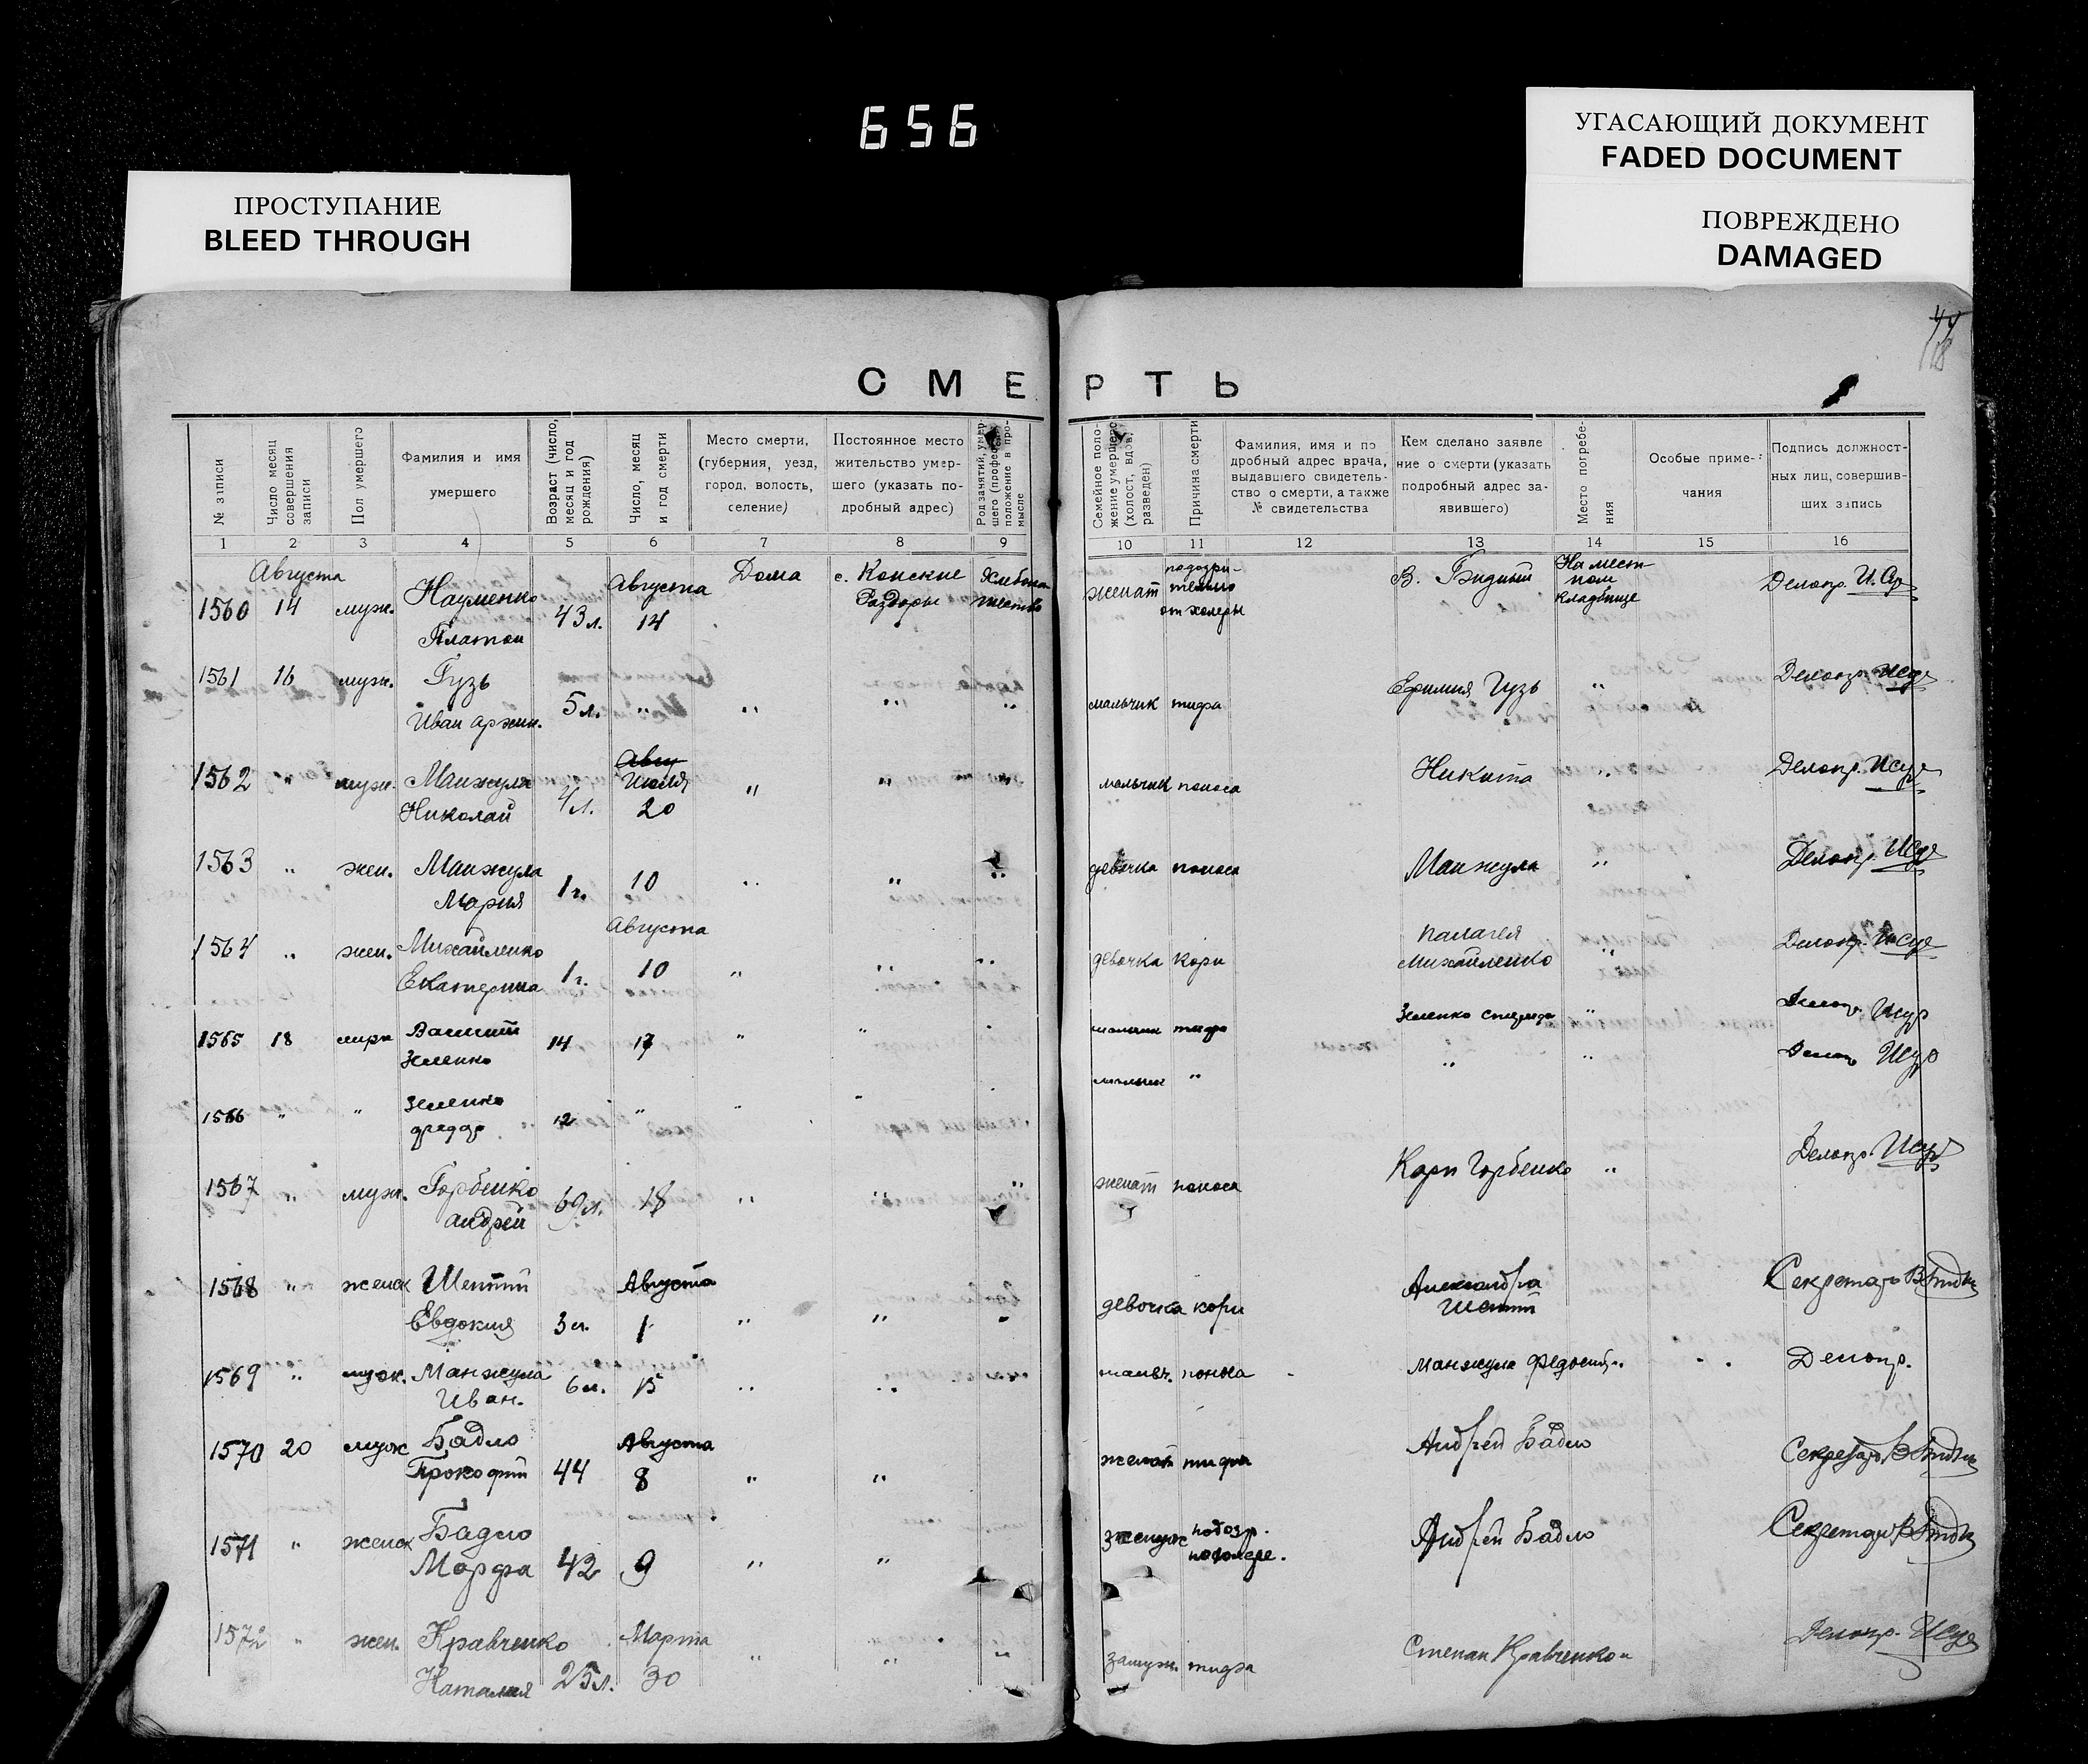 656
УГАСАЮЩИЙ ДОКУМЕНТ
FADED DOCUMENT
ПРОСТУПАНИЕ
BLEED THROUGH
ПОВРЕЖДЕНО
DAMAGED
СМЕРТЬ
№ записи
Число месяц совершения записи
Пол умершего
Фамилия и имя умершего
Возраст (число, месяц и год рождения)
Число, месяц и год смерти
Место смерти, (губерния, уезд, город, волость, селение)
Постоянное место жительство умершего (указать подробный адрес)
Род занятий умершего (профессия, положение в промысле
Семейное положение умершего (холост, вдов, разведен)
Причина смерти
Фамилия, имя и подробный адрес врача, выдавшего свидетельство о смерти, а также № свидетельства
Кем сделано заявление о смерти (указать подробный адрес заявившего)
Место погребения
Особые примечания
Подпись должностных лиц, совершивших запись
1 2 3 4 5 6 7 8 9 10 11 12 13 14 15 16
Августа
1560 14 муж. Науменко Платон 43 л. Августа 14 Дома с. Конские Раздоры женат подозрительно от холеры В. Бидный На местном кладбище Делопр.
1561 16 муж. Гузь Иван 5 л. " " " " мальчик тифа Ефимия Гузь " Делопр.
1562 " муж. Манжула Николай 4 л. Июля 20 " " " мальчик поноса Никита " Делопр.
1563 " жен. Манжула Мария 1 г. 10 " " " девочка поноса Манжула " Делопр.
1564 " жен. Михайленко Екатерина 1 г. Августа 10 " " " девочка кори Палагея Михайленко " Делопр.
1565 18 Зеленко 14 17 " " " мальчик тифа Зеленко "
1566 " " Зеленко 12 " " " мальчик " " "
1567 " муж. Горбенко Андрей 69 л. 18 " " " женат поноса Карп Горбенко " Делопр.
1568 " женск Евдокия 3 л. Августа 1 " " " девочка кори Александра Секретарь
1569 " муж. Манжула Иван. 6 л. 15 " " мальч. поноса Манжула Делопр.
1570 20 муж Бадло Прокофий 44 Августа 8 " " женат тифа Андрей Бадло Секретарь
1571 " женск Бадло Марфа 42 9 " " подозр. Андрей Бадло Секретарь
1572 " жен. Кравченко Наталия 25 л. Марта 30 " " " замуж. тифа Степан Кравченко " Делопр.